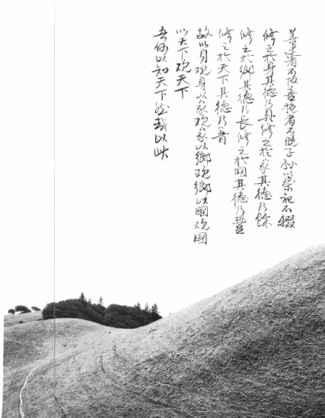 善建者不拔善抱者不脫子孫以祭祀不輟
修之於身其德乃真修之於家其德乃餘
修之於鄉其德乃長修之於國其德乃豐
修之於天下其德乃普
故以身觀身以家觀家以鄉觀鄉以國觀國
以天下觀天下
吾何以知天下然哉以此